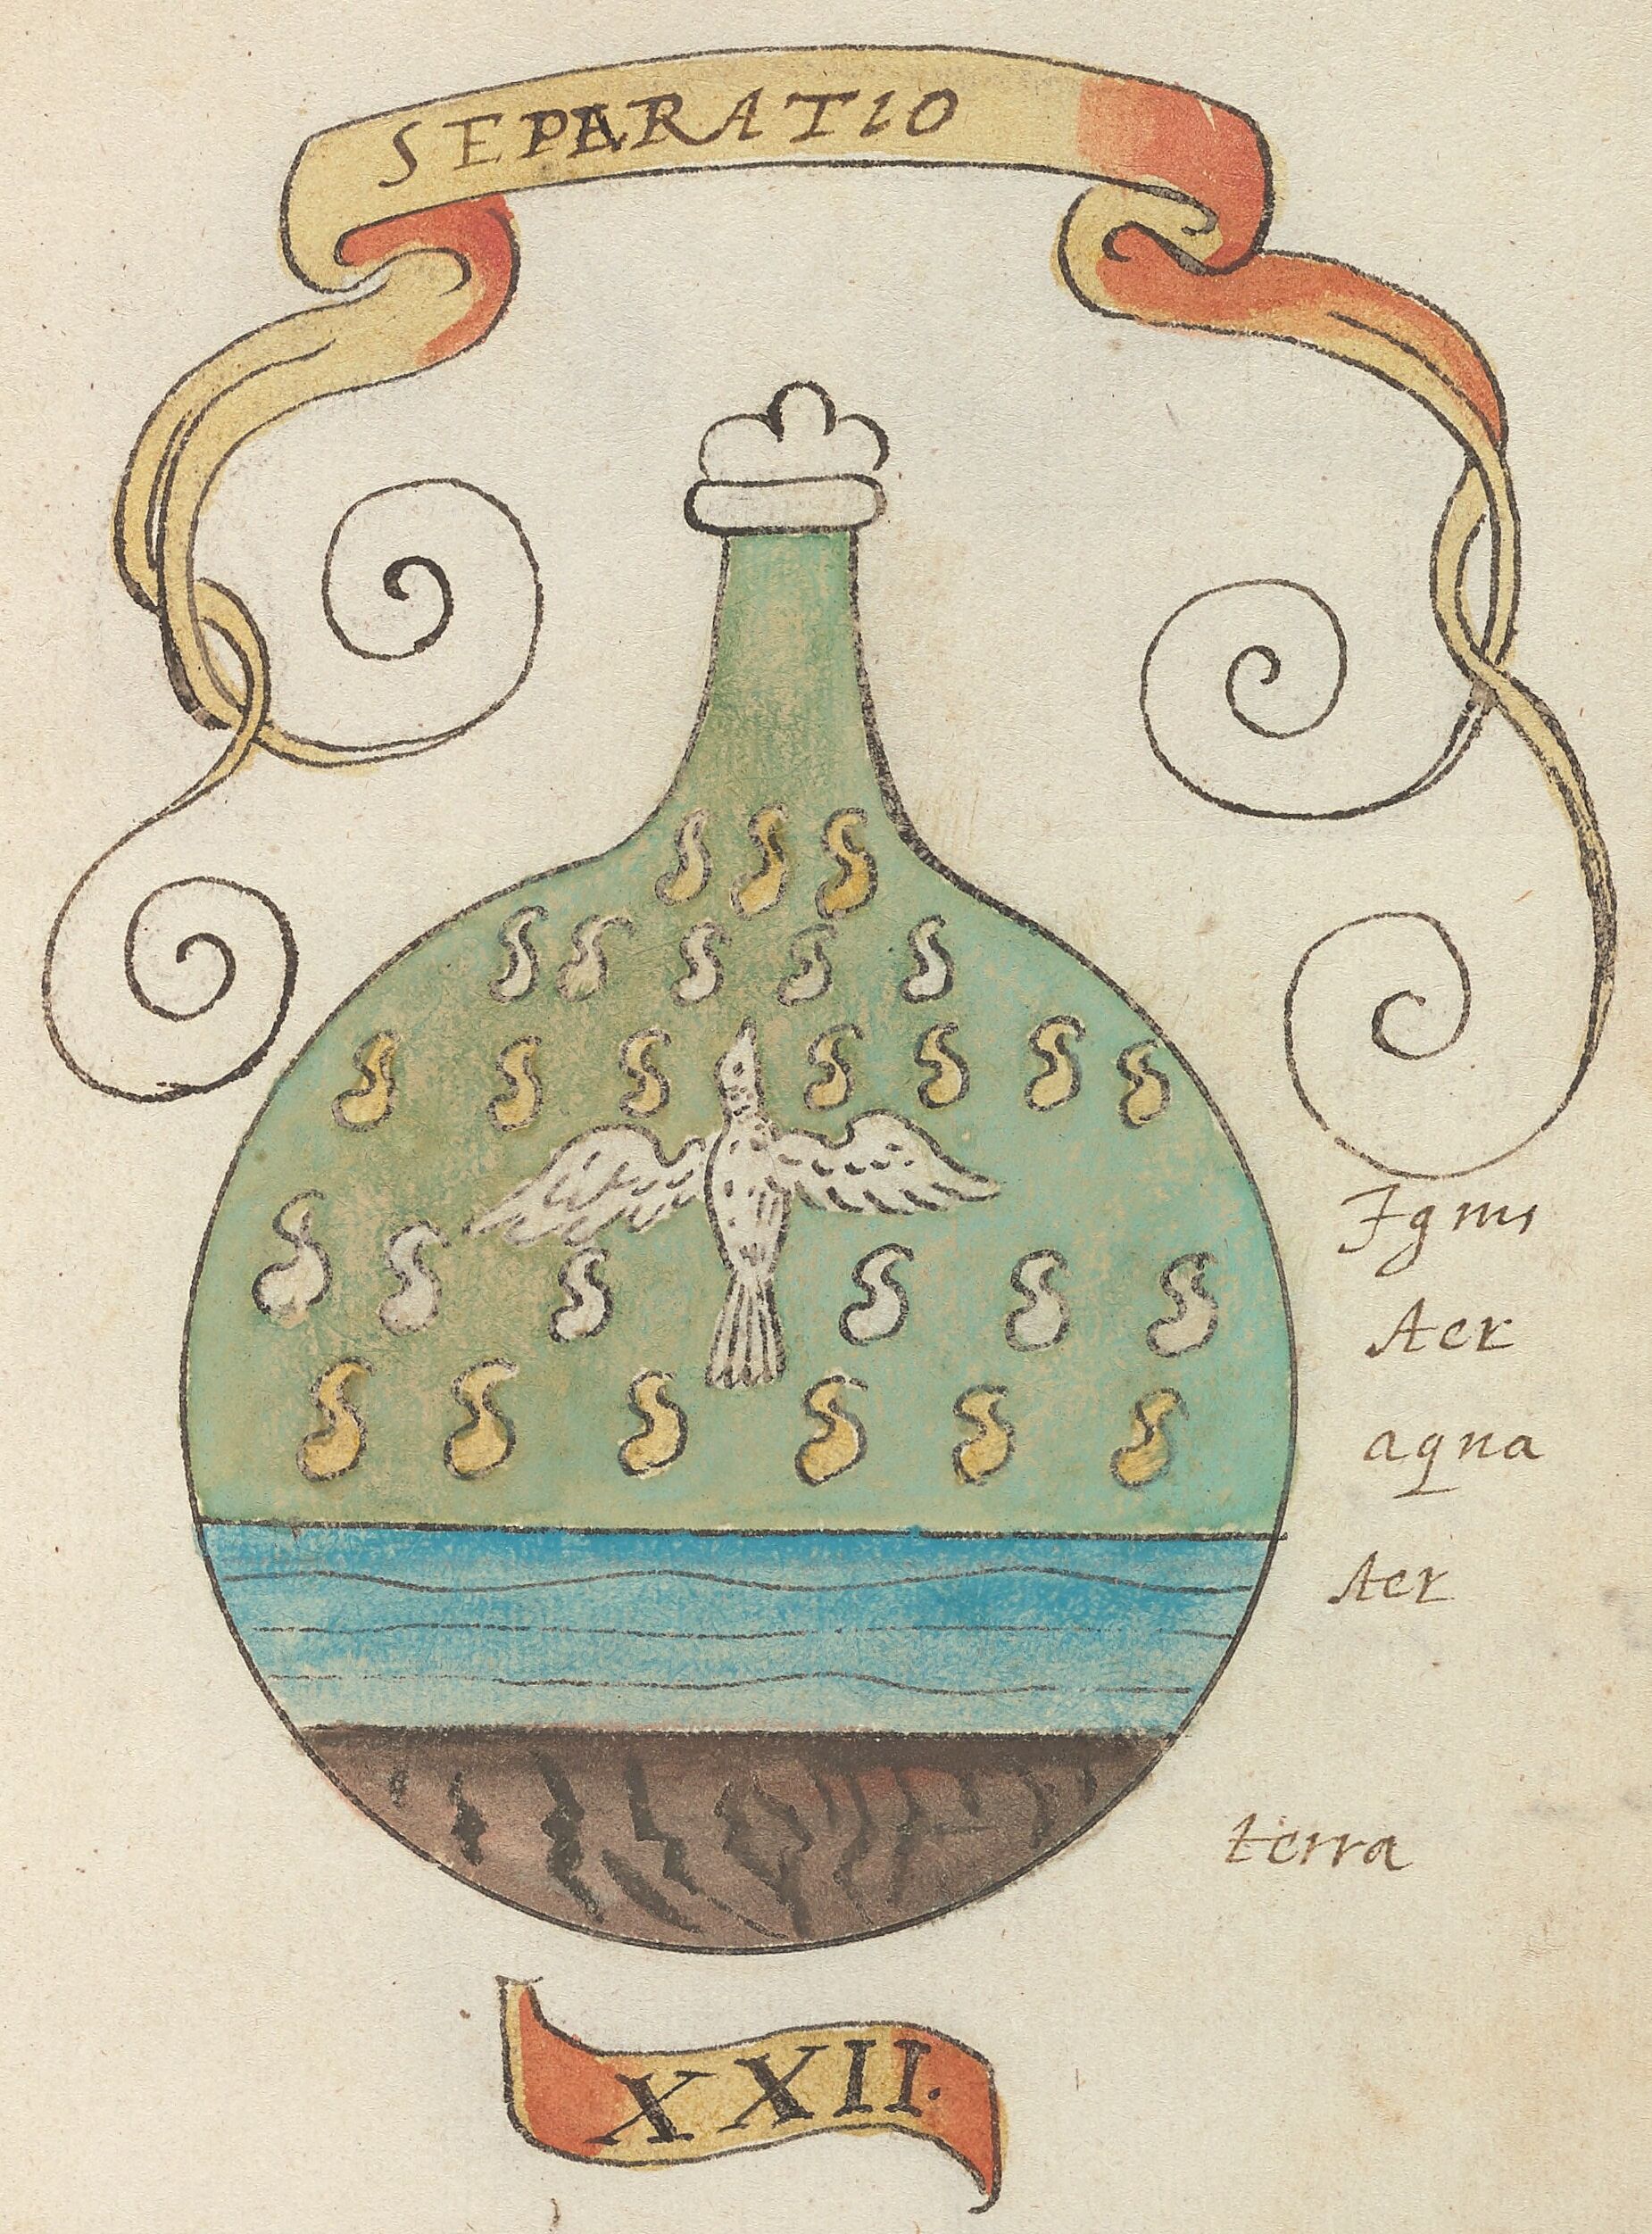 SEPARATIO
Ignis
Aer
aqua
Aer
terra
XXII.